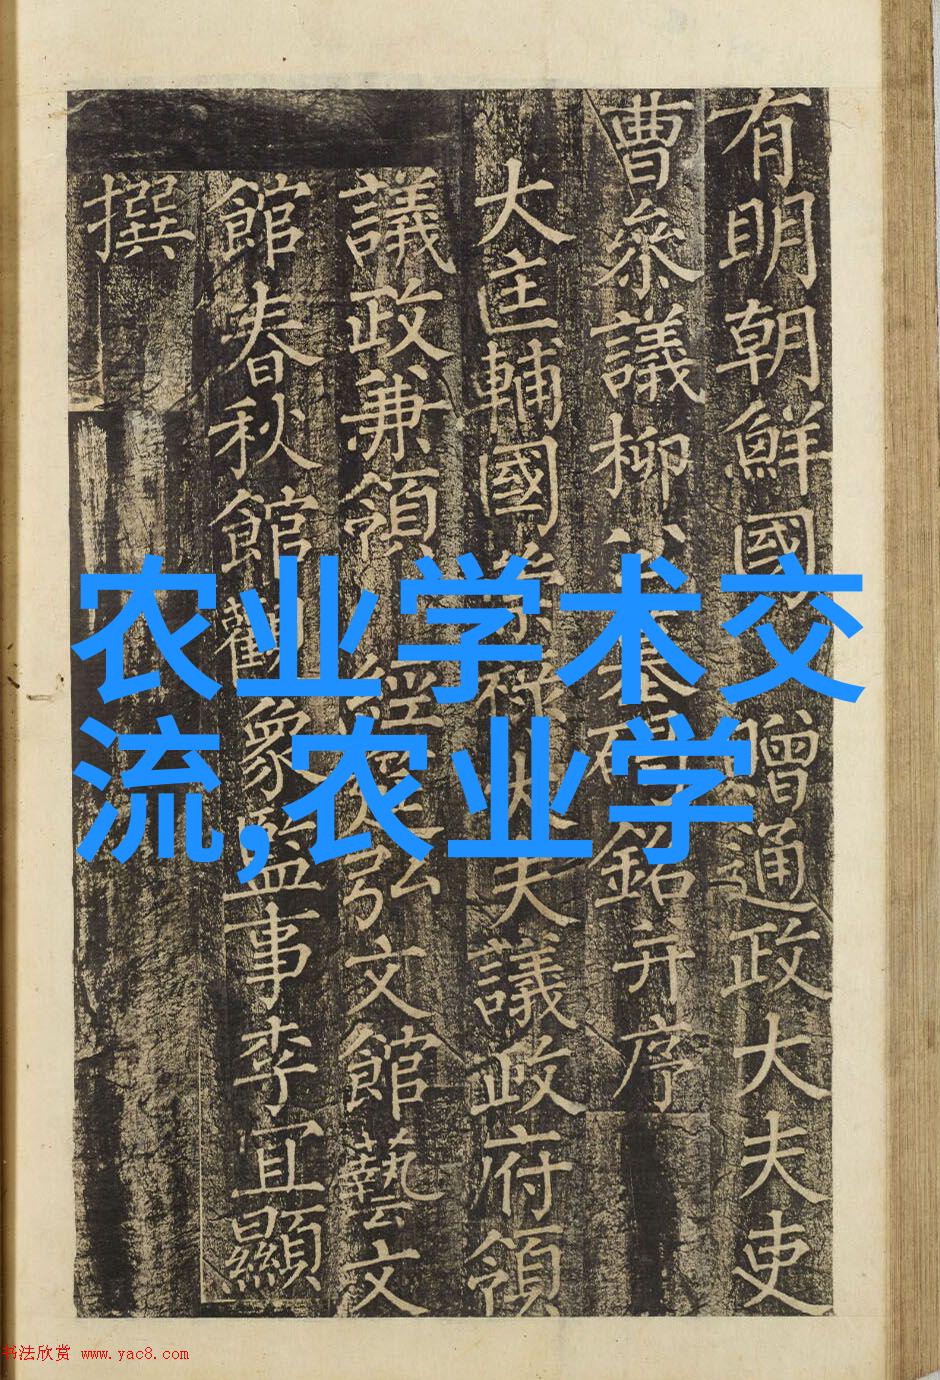 有明朝鮮國贈通政大夫吏
曹參議柳公墓碣銘并序
大匡輔國崇祿大夫議政府領
議政兼領經筵弘文館藝文
館春秋館觀象監事李宜顯
撰
农业学术交
流,农业学
书法欣赏 www.yac8.com